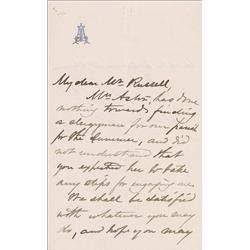 My dear Mr. Russell,
Mrs. Astor, has done
nothing towards finding
a clergyman for our
for the Summer, and did
not understand that
you expected her to take
any steps for engaging one.
We shall be satisfied
with whatever you may
do, and hope you may